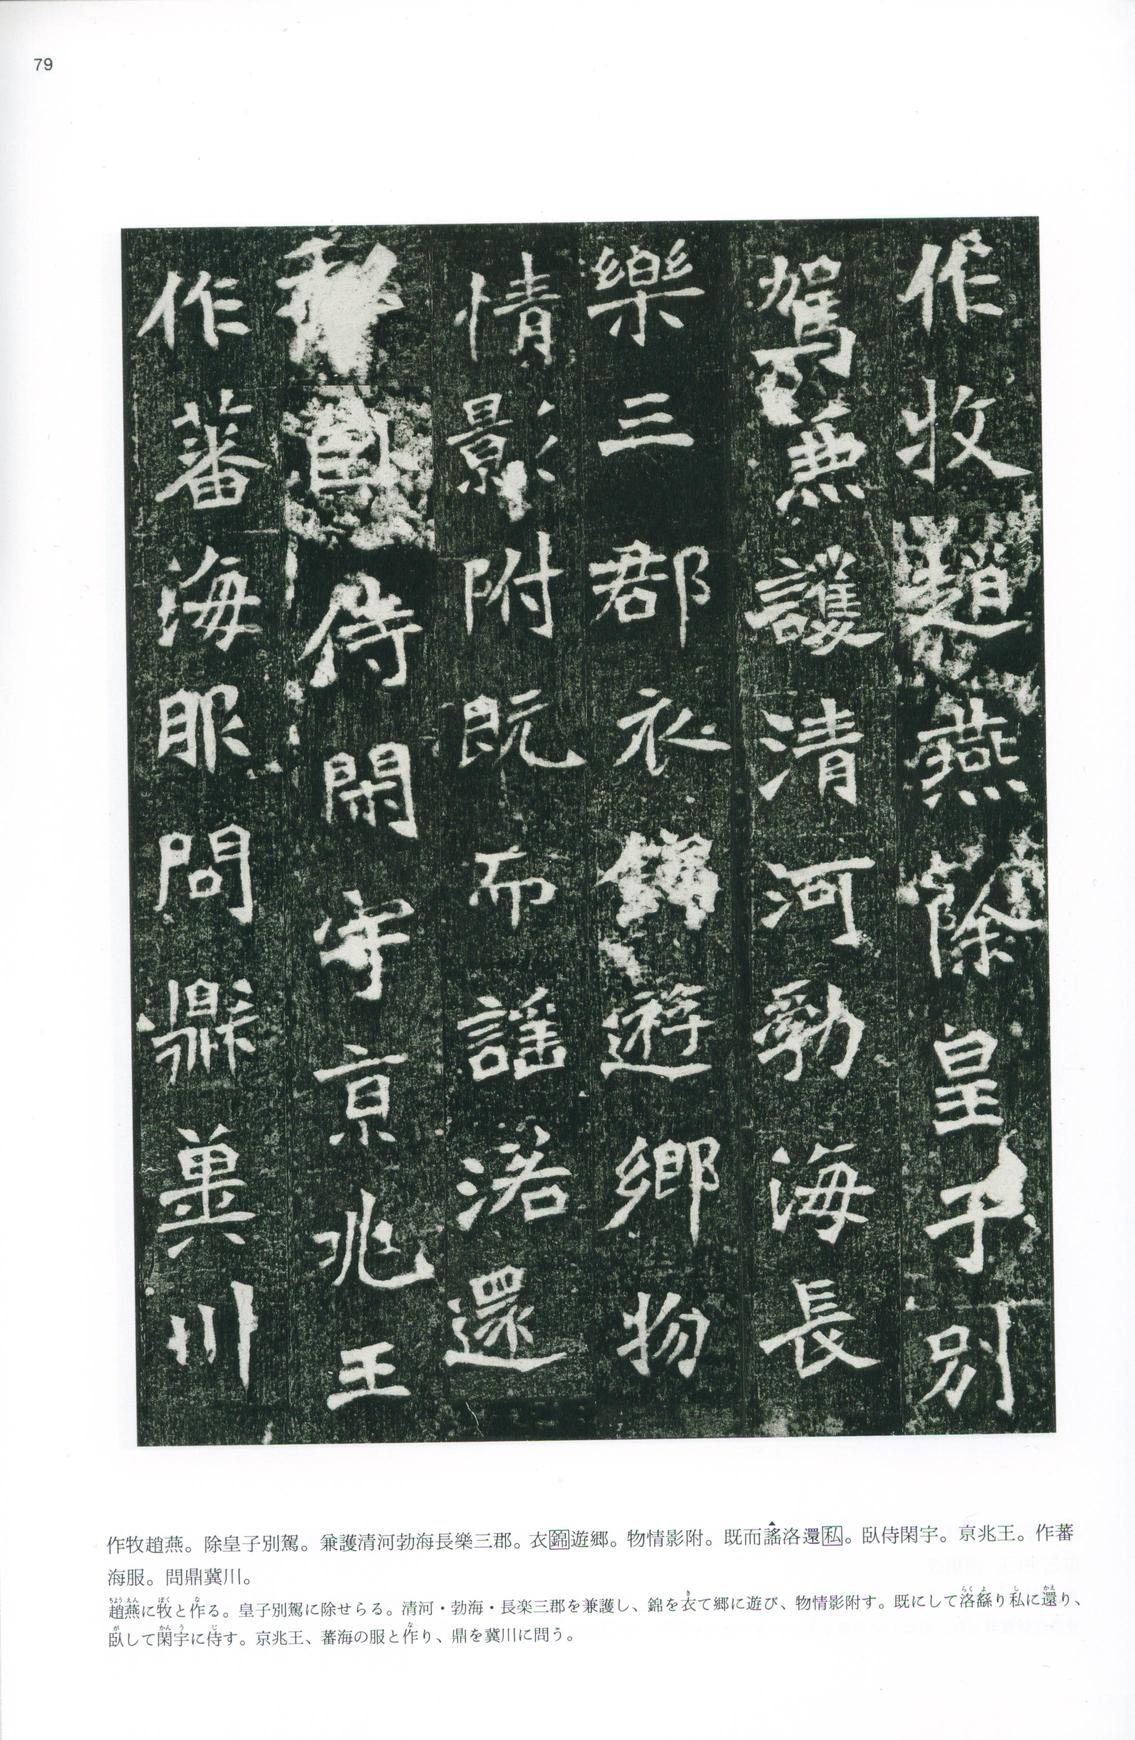 79
作牧趙燕除皇子別
駕兼護清河勃海長
樂三郡衣錦遊鄉物
情影附既而謠洛還
私臥侍閑宇京兆王
作蕃海服問鼎冀川
作牧趙燕。除皇子別駕。兼護清河勃海長樂三郡。衣錦遊鄉。物情影附。既而謠洛還私。臥侍閑宇。京兆王。作蕃
海服。問鼎冀川。
趙燕に牧と作る。皇子別駕に除せらる。清河・勃海・長楽三郡を兼護し、錦を衣て郷に遊び、物情影附す。既にして洛繇り私に還り、
臥して閑宇に侍す。京兆王、蕃海の服と作り、鼎を冀川に問う。